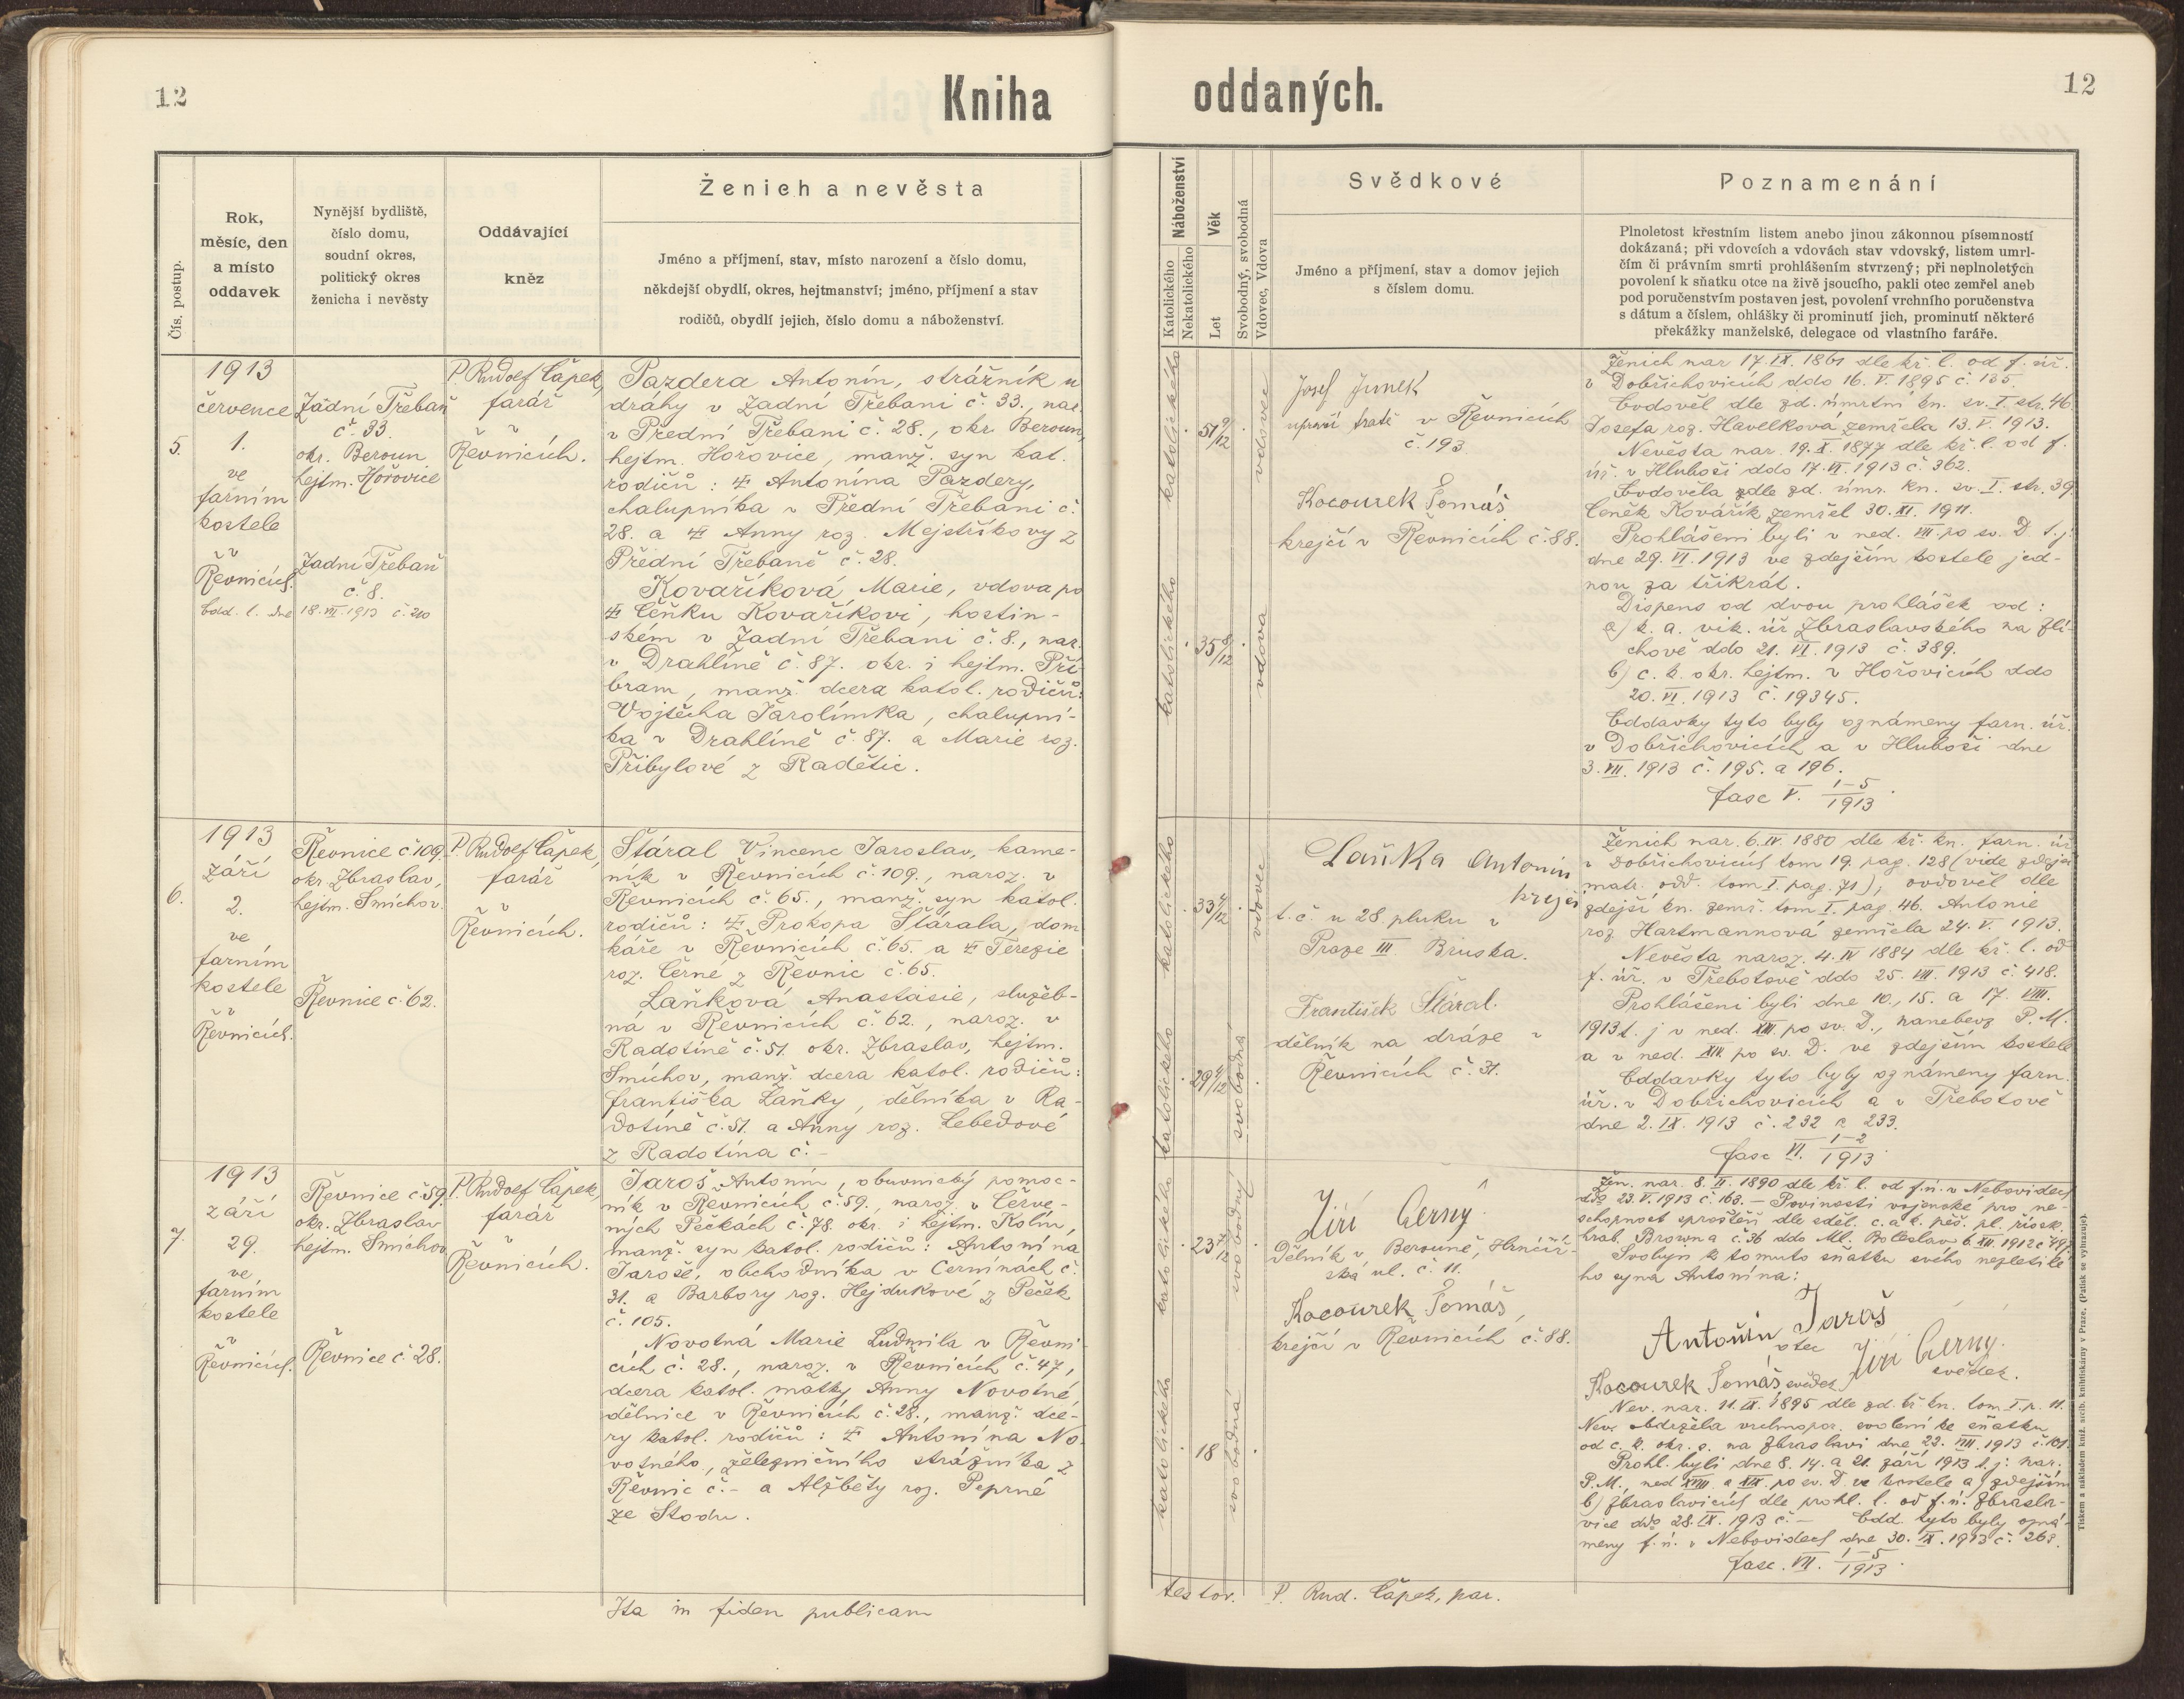 12
Kniha
oddaných.
12
Čís. postup.
Rok,
měsíc, den
a místo
oddavek
Nynější bydliště,
číslo domu,
soudní okres,
politický okres
ženicha i nevěsty
Oddávající
kněz
Ženich a nevěsta
Jméno a příjmení, stav, místo narození a číslo domu,
někdejší obydlí, okres, hejtmanství; jméno, příjmení a stav
rodičů, obydlí jejich, číslo domu a náboženství.
Náboženství
Katolického
Nekatolického
Věk
Let
Svobodný, svobodná
Vdovec, Vdova
Svědkové
Jméno a příjmení, stav a domov jejich
s číslem domu.
Poznamenání
Plnoletost křestním listem anebo jinou zákonnou písemností
dokázaná; při vdovcích a vdovách stav vdovský, listem umrl-
čím či právním smrti prohlášením stvrzený; při neplnoletých
povolení k sňatku otce na živě jsoucího, pakli otec zemřel aneb
pod poručenstvím postaven jest, povolení vrchního poručenstva
s dátum a číslem, ohlášky či prominutí jich, prominutí některé
překážky manželské, delegace od vlastního faráře.
5.
1913
července
1.
ve
farním
kostele
v
Řevnicích.
Odd. l. dne 18.VII.1913 č. 210
Zadní Třebaň
č. 33.
okr. Beroun
hejtm. Hořovice
Zadní Třebaň
č. 8.
P. Rudolf Čápek,
farář
v
Řevnicích.
Pazdera Antonín, strážník u
dráhy v Zadní Třebani č. 33., nar.
v Přední Třebani č. 28., okr. Beroun,
hejtm. Hořovice, manž. syn kat.
rodičů: Antonína Pazdery,
chalupníka v Přední Třebani č.
28. a Anny roz. Mejstříkovy z
Přední Třebaně č. 28.
Kovaříková Marie, vdova po
Čeňku Kovaříkovi, hostin-
ském v Zadní Třebani č. 8., nar.
v Drahlíně č. 87. okr. i hejtm. Pří-
bram, manž. dcera katol. rodičů:
Vojtěcha Jarolímka, chalupní-
ka v Drahlíně č. 87. a Marie roz.
Přibylové z Radětic.
katolického
51 9/12
vdovec
katolického
35 8/12
vdova
Josef Junek
upravč tratě v Řevnicích
č. 193
Kocourek Tomáš
krejčí v Řevnicích č. 88.
Ženich nar. 17.IX.1861 dle kř. l. od f. úř.
v Dobřichovicích ddo 16. V. 1895 č. 135.
Ovdověl dle zd. úmrtní kn. sv. I. str. 46
Josefa roz. Havelková zemřela 13. V. 1913.
Nevěsta nar. 19. X. 1877 dle kř. l. od f.
úř. v Hluboši ddo 17. VI. 1913 č. 362.
Ovdověla zdle zd. úmr. kn. sv. I. str. 39
Čeněk Kovářík zemřel 30. XI. 1911.
Prohlášeni byli v ned. VII. po sv. D. t. j.
dne 29. VI. 1913 ve zdejším kostele jed-
nou za třikrát.
Dispens od dvou prohlášek od:
a) k. a. vik. úř. Zbraslavského na Zlí-
chově ddo 21. VI. 1913 č. 389.
b) c. k. okr. hejtm. v Hořovicích ddo
20. VI. 1913 č. 19345.
Oddavky tyto byly oznámeny farn. úř.
v Dobřichovicích a v Hluboši dne
3. VII. 1913 č. 195. a 196.
fasc V. 1-5/1913.
6.
1913
září
2.
ve
farním
kostele
v
Řevnicích.
Řevnice č. 109.
okr. Zbraslav,
hejtm. Smíchov.
Řevnice č. 62.
P. Rudolf Čápek,
farář
v
Řevnicích.
Štáral Vincenc Jaroslav, kame-
ník v Řevnicích č. 109., naroz. v
Řevnicích č. 65., manž. syn katol.
rodičů: Prokopa Štárala, dom-
káře v Řevnicích č. 65. a Terezie
roz. Černé z Řevnic č. 65.
Laňková Anastasie, služeb-
ná v Řevnicích č. 62., naroz. v
Radotíně č. 51. okr. Zbraslav, hejtm.
Smíchov, manž. dcera katol. rodičů:
Františka Laňky, dělníka v Ra-
dotíně č. 51. a Anny roz. Lebedové
z Radotína č. -
katolického
33 4/12
vdovec
katolického
29 4/12
svobodná
Laňka Antonín
krejčí
t. č. u 28 pluku v
Praze III Bruska.
František Štáral.
dělník na dráze v
Řevnicích č. 31.
Ženich nar. 6. IV. 1880 dle kř. kn. farn. úř.
v Dobřichovicích tom 19. pag. 128 (vide zdejší
matr. odd. tom I. pag. 71); ovdověl dle
zdejší kn. zemř. tom I. pag. 46. Antonie
roz. Hartmannová zemřela 24. V. 1913.
Nevěsta naroz. 4. IV 1884 dle kř. l. od
f. úř. v Třebotově ddo 25. VIII. 1913 č. 418.
Prohlášeni byli dne 10., 15. a 17. VIII.
1913 t. j. v ned. XIII. po sv. D., nanebevz P. M.
a v ned. XIV. po sv. D. ve zdejším kostele
Oddavky tyto byly oznámeny farn.
úř. v Dobřichovicích a v Třebotově
dne 2. IX. 1913 č. 232 a 233.
fasc VI. 1-2/1913.
7.
1913
září
29.
ve
farním
kostele
v
Řevnicích.
Řevnice č. 59.
okr. Zbraslav
hejtm. Smíchov
Řevnice č. 28.
P. Rudolf Čápek,
farář
v
Řevnicích.
Jaroš Antonín, obuvnický pomoc-
ník v Řevnicích č. 59., naroz. v Červe-
ných Pečkách č. 78. okr. i hejtm. Kolín,
manž. syn katol. rodičů: Antonína
Jaroše, obchodníka v Cerninách č.
31. a Barbory roz. Hejdukové z Peček
č. 105.
Novotná Marie Ludmila v Řevni-
cích č. 28., naroz. v Řevnicích č. 47,
dcera katol. matky Anny Novotné,
dělnice v Řevnicích č. 28., manž. dce-
ry katol. rodičů: Antonína No-
votného, železničního strážníka z
Řevnic č. - a Alžběty roz. Peprné
ze Stodu.
katolického
23 7/12
svobodný
katolického
18
svobodná
Jiří Černý.
Dělník v Berouně, Hrnčíř-
ská ul. č. 11.
Kocourek Tomáš,
krejčí v Řevnicích č. 88.
Žen. nar. 8. II. 1890 dle kř. l. od f. ú. v Nebovidech
ddo 23. V. 1913 č. 163. — Povinosti vojenské pro ne-
schopnost sproštěn dle sděl. c. a k. pěš. pl. říšsk.
hrab. Browna č. 36 ddo Ml. Boleslav 6. XII. 1912
Svoluji k tomuto sňatku svého nezletilé-
ho syna Antonína:
Antonín Jaroš
otec
Jiří Černý.
svědek.
Kocourek Tomáš svědek
Nev. nar. 11. IX. 1895 dle zd. kř. kn. tom. I. p. 11.
Nev. obdržela vrchnopor. svolení ke sňatku
od c. k. okr. s. na Zbraslavi dne 22. VIII. 1913
Prohl. byli dne 8. 14. a 21. září 1913 t. j: nar.
P. M., ned XVIII. a XIX. po sv. D. ve kostele a) zdejším
b) Zbraslavicích dle prohl. l. od f. ú. Zbrasla-
vice ddo 28. IX. 1913 č. — Odd. tyto byly ozná-
meny f. ú. v Nebovidech dne 30. IX. 1913 č. 268.
fasc. VII. 1-5/1913.
Ita in fidem publicam
testor. P. Rud. Čápek, par.
Tiskem a nákladem kníž. arcib. knihtiskárny v Praze. (Patisk se vyhrazuje).